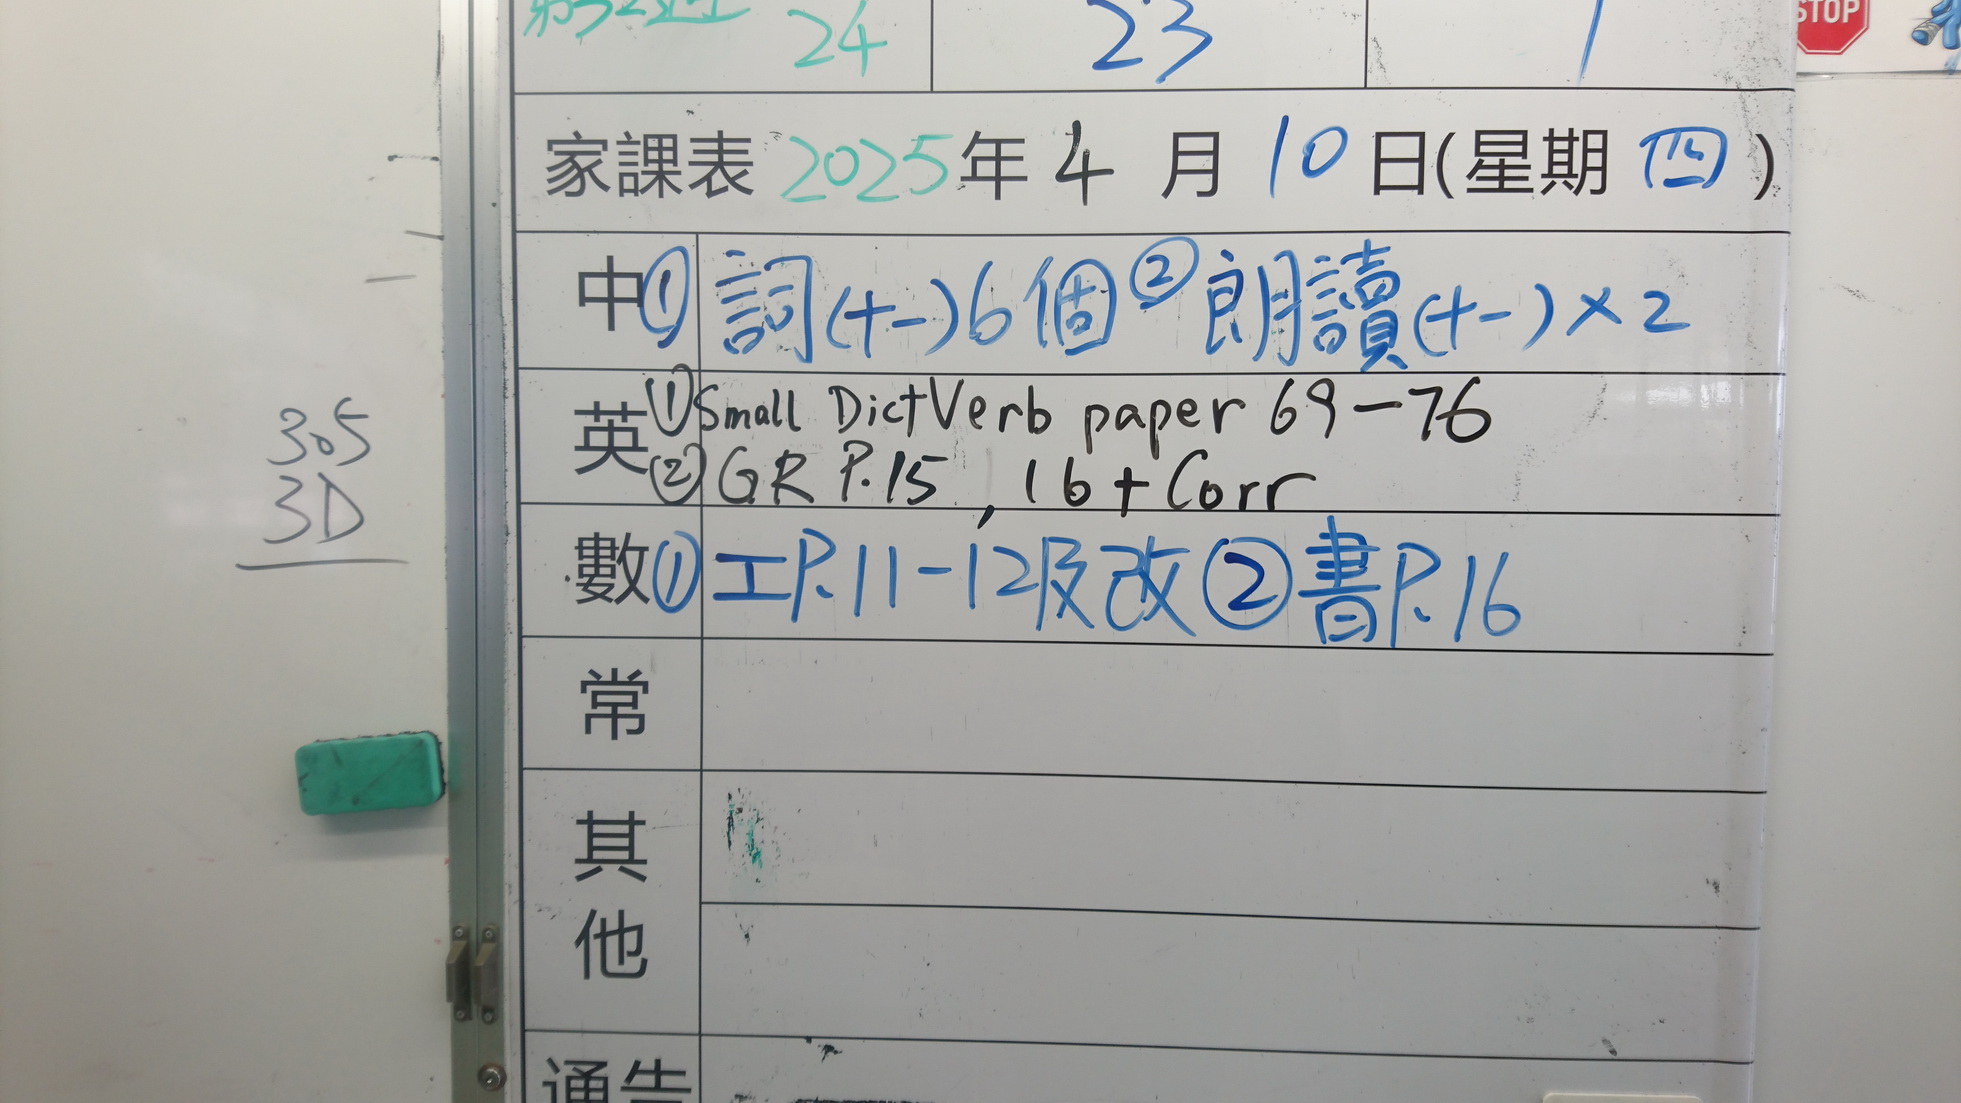 24 23 1
STOP
家課表 2025年 4 月 10 日(星期 四)
中 ① 詞(十一)6個 ② 朗讀(十一)×2
英 ① Small Dict Verb paper 69-76
② GR P.15, 16 + Corr
數 ① 工P.11-12及改 ② 書P.16
常
其他
通告
3.5
3D